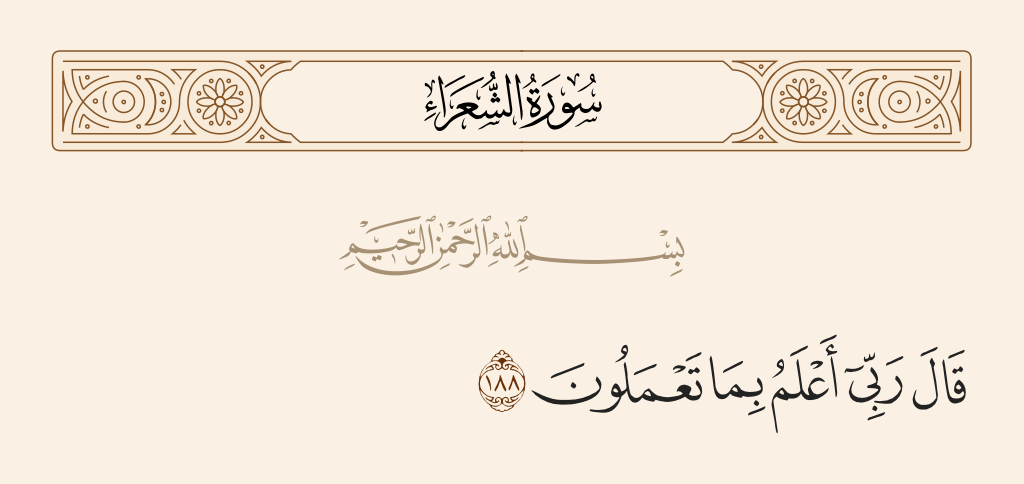 سُورَةُ الشُّعَرَاءِ
بِسْمِ ٱللَّهِ ٱلرَّحْمَٰنِ ٱلرَّحِيمِ
قَالَ رَبِّىٓ أَعْلَمُ بِمَا تَعْمَلُونَ ١٨٨